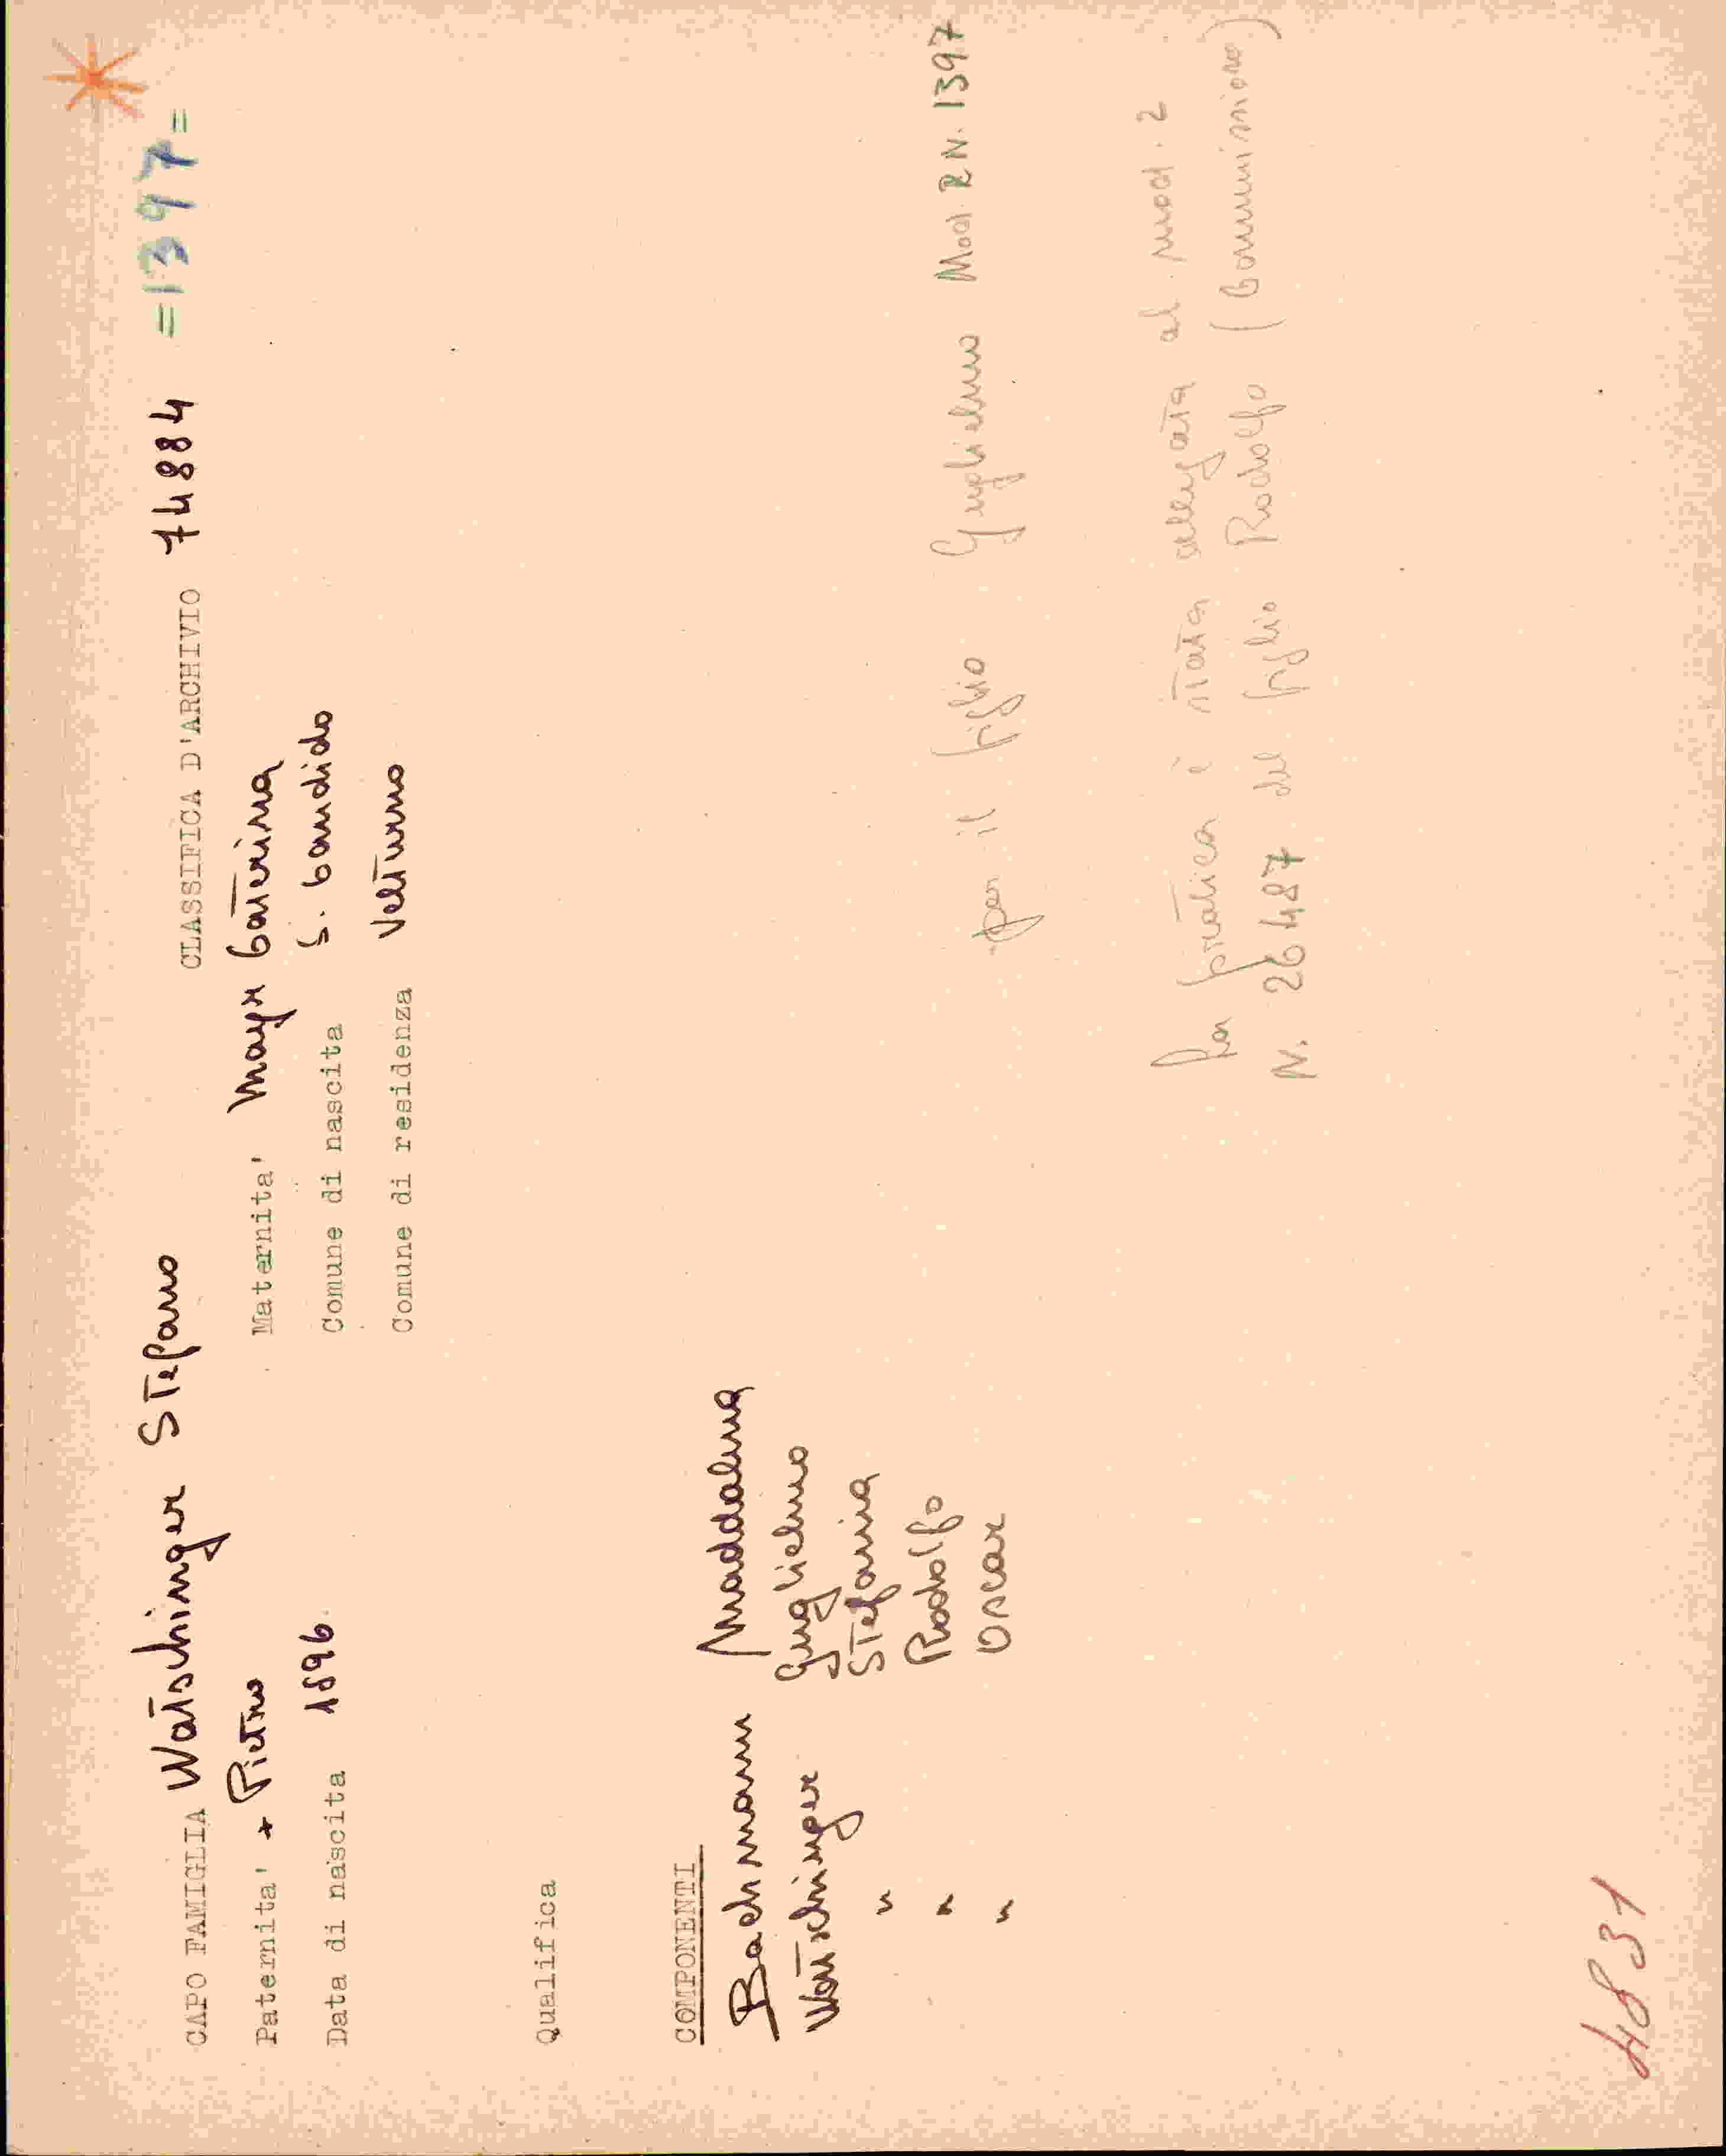 CAPO FAMIGLIA Watschinger Stefano CLASSIFICA D'ARCHIVIO 74884 =1397=
Paternita' + Pietro Maternita' Mayr Caterina
Data di nascita 1896 Comune di nascita S. Candido
Comune di residenza Velturno
Qualifica
COMPONENTI
Bachmann Maddalena
Watschinger Guglielmo
" Stefania
" Rodolfo
" Oscar
per il figlio Guglielmo Mod. R.N. 1397
La pratica è stata allegata al mod. 2
N. 26487 del figlio Rodolfo (Commissione)
4831